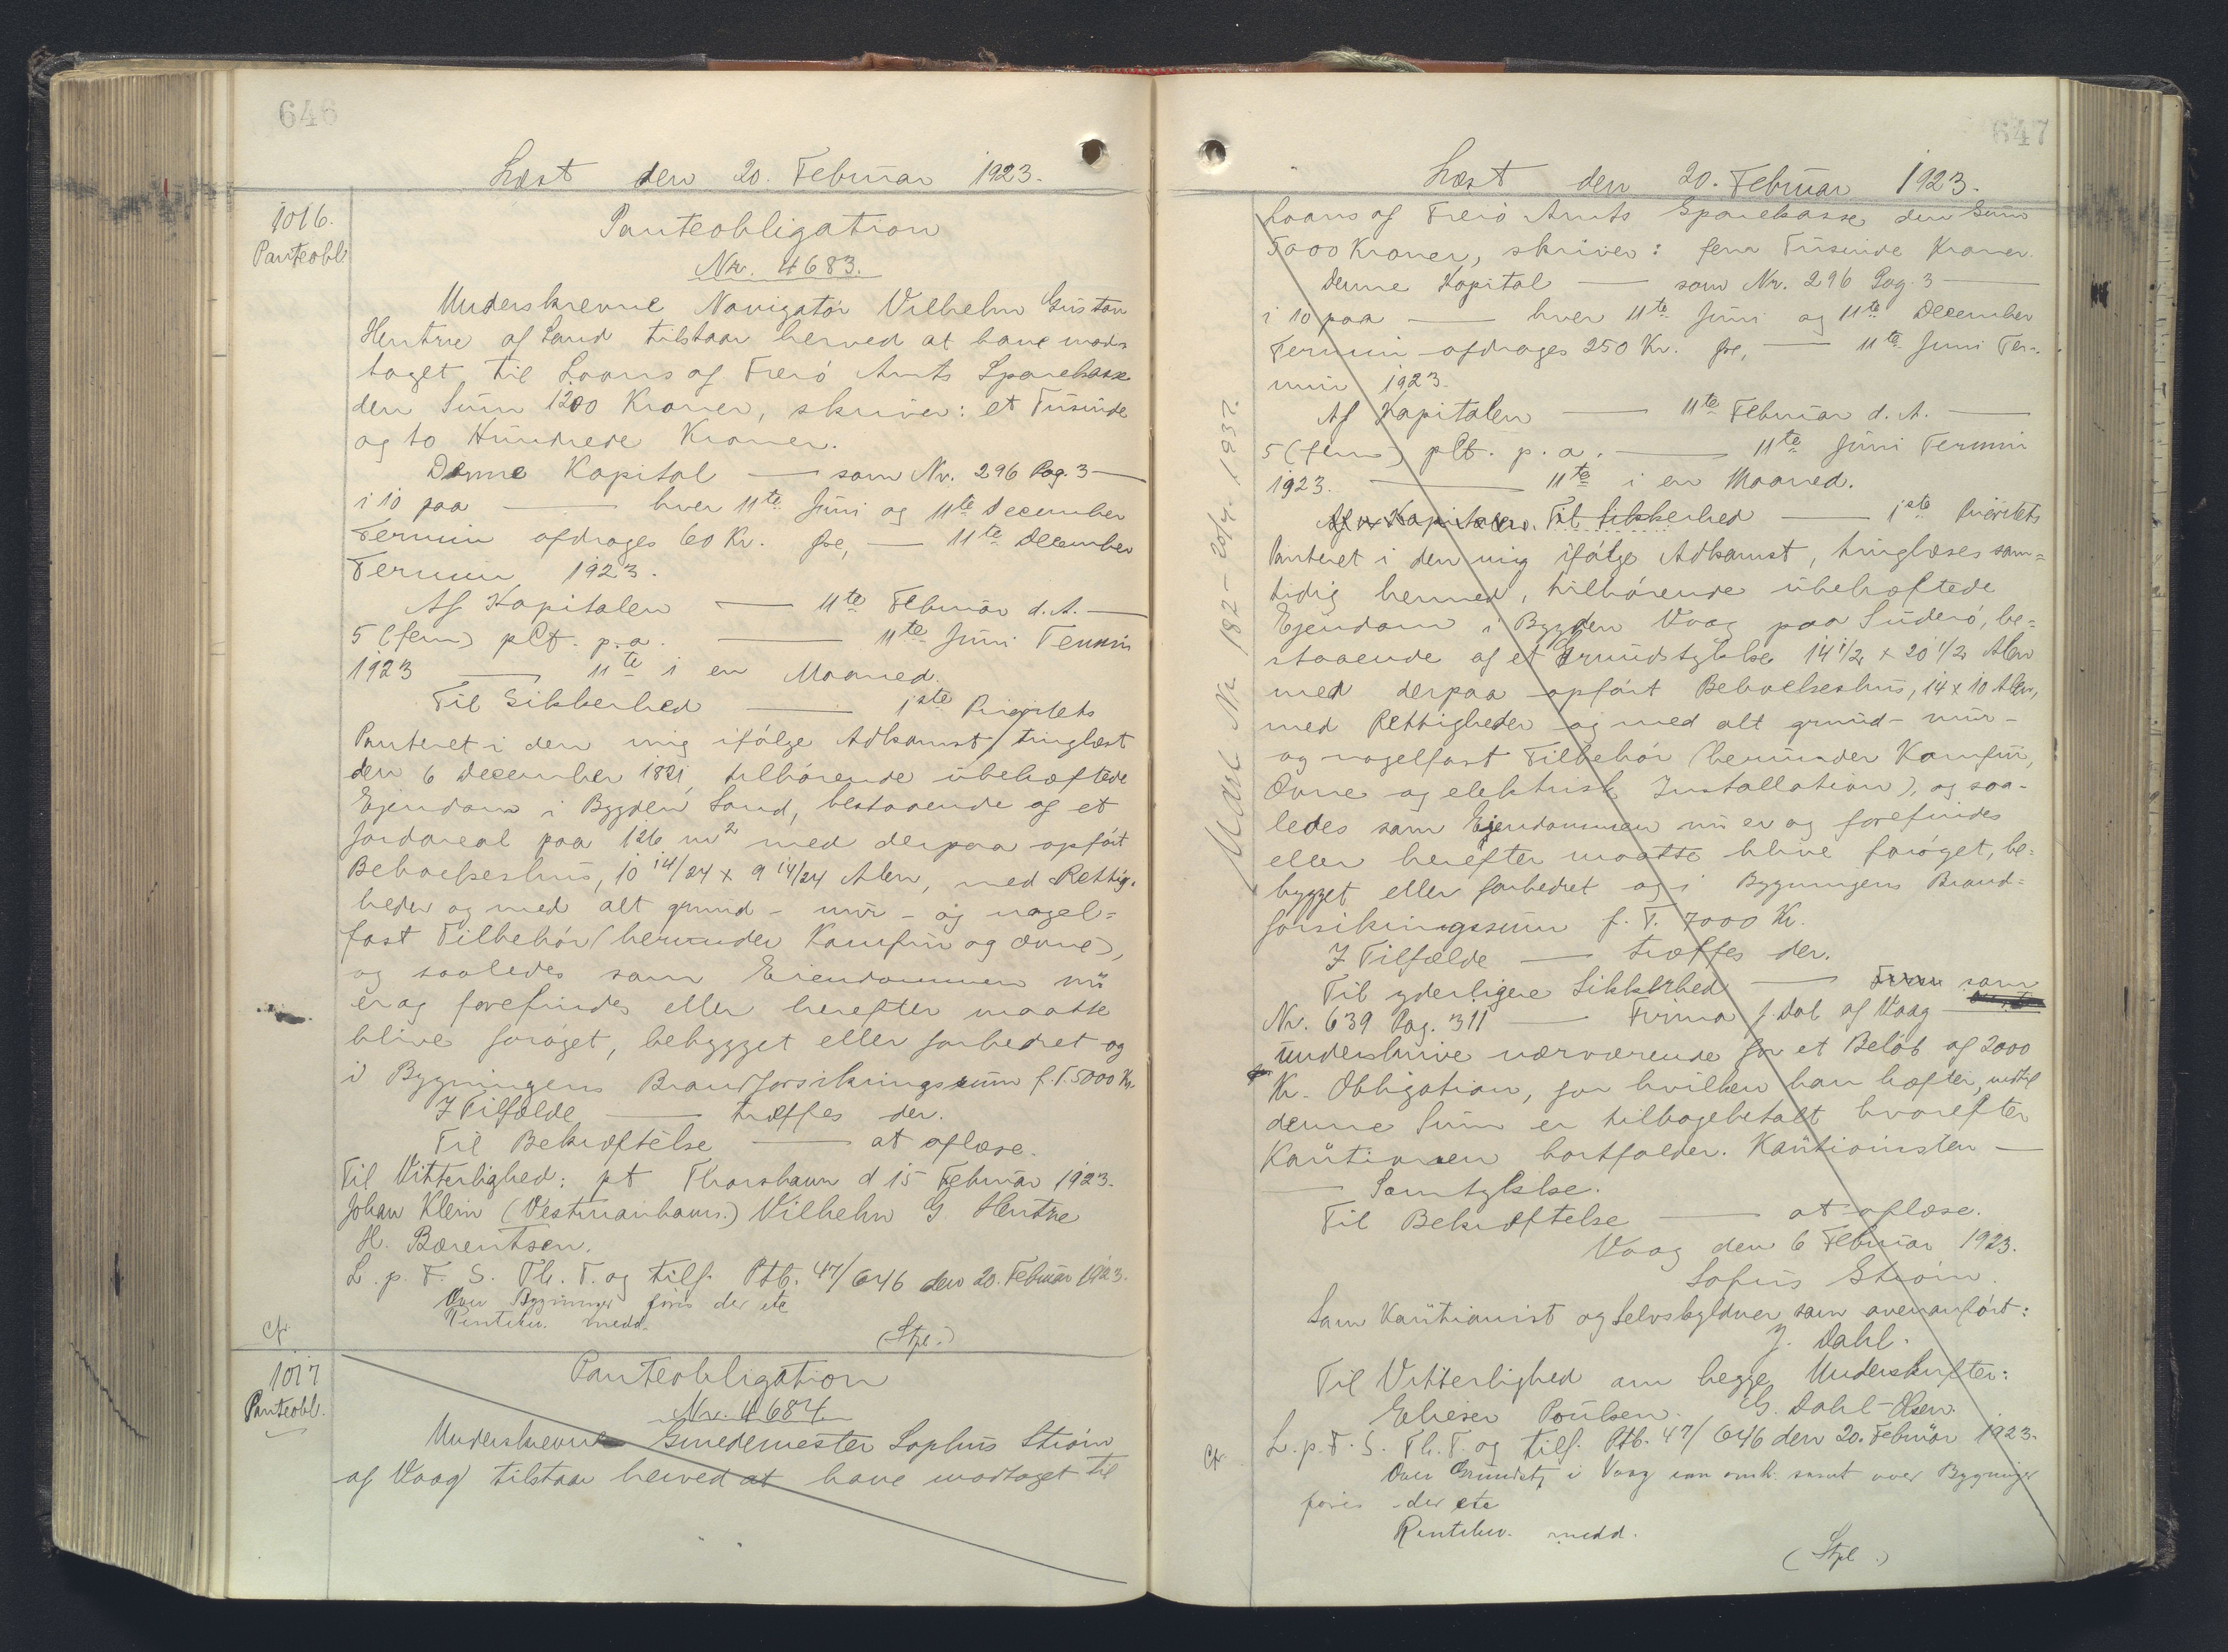 646
Læst den 20. Februar 1923.
1016.
Panteobl.
Panteobligation
Nr. 4683.
Underskrevne Navigatør Vilhelm Gustav
Hentze af Sand tilstaar herved at have mod-
taget til Laans af Færø Amts Sparekasse
den Sum 1200 Kroner, skriver: et Tusinde
og to Hundrede Kroner.
Denne Kapital — som Nr. 296 Pag. 3 —
i 10 paa — hver 11te Juni og 11te December
Termin afdrages 60 Kr. pr, — 11te December
Termin 1923.
Af Kapitalen — 11te Februar d. A. —
5 (fem) pCt. p. a. — 11te Juni Termin
1923 — 11te i en Maaned.
Til Sikkerhed — 1ste Prioritets
Panteret i den mig ifølge Adkomst, tinglæst
den 6 December 1821, tilhørende ubehæftede
Ejendom i Bygden Sand, bestaaende af et
Jordareal paa 126 m2 med derpaa opført
Beboelseshus, 10 14/24 x 9 14/24 Alen, med Rettig-
heder og med alt grund- mur- og nagel=
fast Tilbehør (herunder Komfur og Ovne),
og saaledes som Ejendommen nu
er og forefindes eller herefter maatte
blive forøget, bebygget eller forbedret og
i Bygningens Brandforsikringssum f. T. 5000 Kr.
I Tilfælde — træffes der.
Til Bekræftelse — at aflæse.
Til Vitterlighed: pt Thorshavn d 15 Februar 1923.
Johan Klein (Vestmanhavn.) Vilhelm G. Hentze
H. Bærentsen.
L. p. F. S. Th. T. og tilf. Ptb. 47/646 den 20. Februar 1923.
Over Bygninger føris der ete
Rentekv. medd.
cfr.
(Stpl.)
1017
Panteobl.
Panteobligation
Nr. 4684.
Underskrevne Smedemester Sophus Strøm
af Vaag tilstaar herved at have modtaget til
647
Læst den 20. Februar 1923.
Laans af Færø Amts Sparekasse den Sum
5000 Kroner, skriver: fem Tusinde Kroner.
Denne Kapital — som Nr. 296 Pag. 3 —
i 10 paa — hver 11te Juni og 11te December
Termin afdrages 250 Kr. pr, — 11te Juni Ter-
min 1923.
Af Kapitalen — 11te Februar d. A. —
5 (fem) pCt. p. a. — 11te Juni Termin
1923. — 11te i en Maaned.
Af Kapitalen. Til Sikkerhed — 1ste Prioritets
Panteret i den mig ifølge Adkomst, tinglæses sam=
tidig hermed, tilhørende ubehæftede
Ejendom i Bygden Vaag paa Suderø, be=
staaende af et Grundstykke 14 1/2 x 20 1/2 Alen
med derpaa opført Beboelseshus, 14 x 10 Alen,
med Rettigheder og med alt grund- mur-
og nagelfast Tilbehør (herunder Komfur,
Ovne og elektrisk Installation), og saa-
ledes som Ejendommen nu er og forefindes
eller herefter maatte blive forøget, be=
bygget eller forbedret og i Bygningens Brand=
forsikringssum f. T. 7000 Kr.
I Tilfælde — træffes der.
Til yderligere Sikkerhed — som
Nr. 639 Pag. 311 — Firma J. Dahl af Vaag —
underskrive nærværende for et Beløb af 2000
Kr. Obligation, for hvilken han hæfter, indtil
denne Sum er tilbagebetalt hvorefter
Kautionen bortfalder. Kautionisten —
— Samtykke.
Til Bekræftelse — at aflæse.
Vaag den 6 Februar 1923.
Sofus Strøm.
Som Kautionist og Selvskyldner som ovenanført:
J. Dahl.
Til Vitterlighed om begge Underskrifter:
Elieser Poulsen. G. Dahl-Olsen.
L. p. F. S. Th. T. og tilf. Ptb. 47/646 den 20. Februar 1923.
cfr.
Over Grundst. i Vaag som omh. samt over Bygninger
føris der ete
Rentekv. medd.
(Stpl.)
Udsl. Nr 182 - 20/4. 1937.